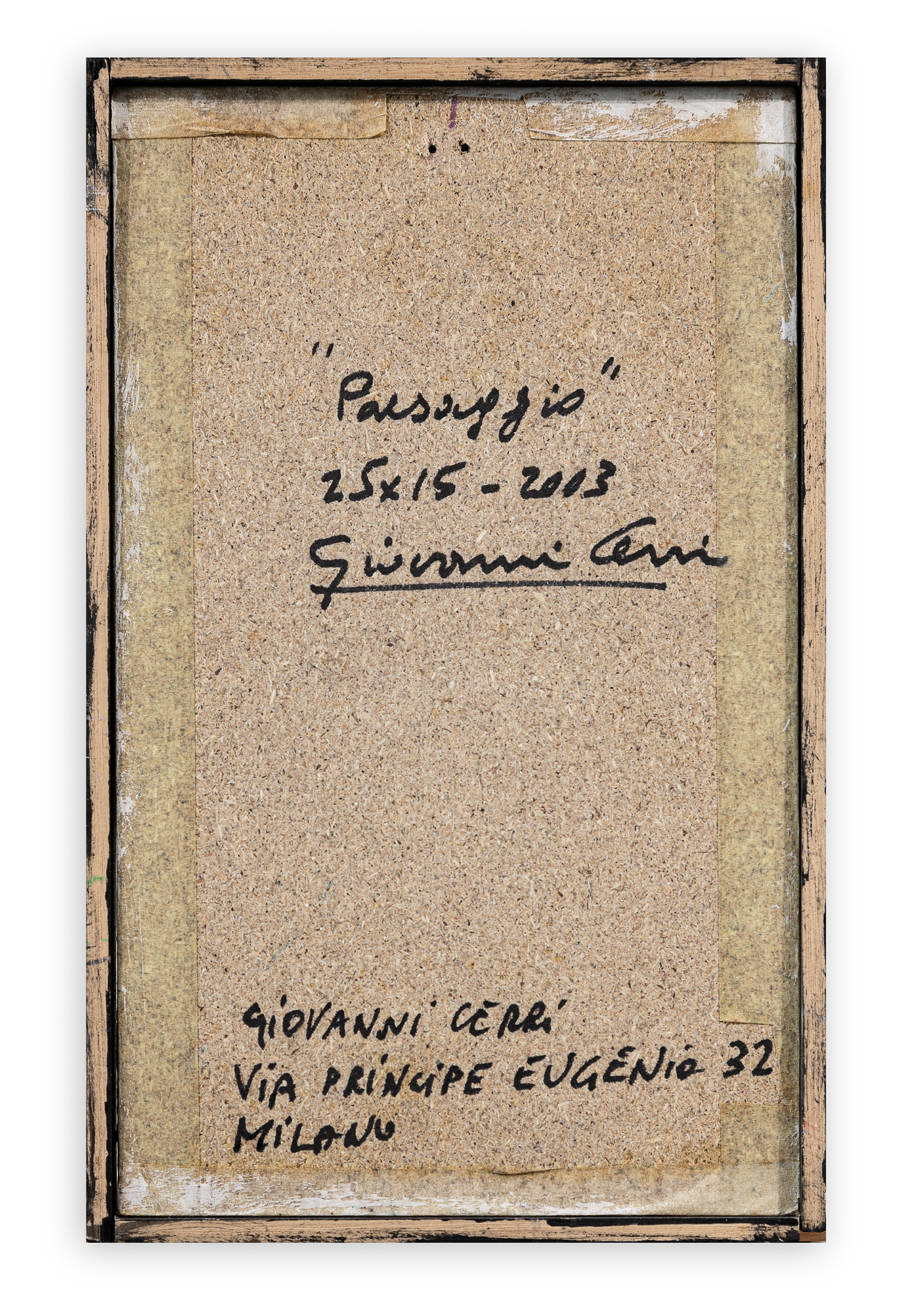 "Paesaggio"
25x15 - 2003
Giovanni Cerri
GIOVANNI CERRI
VIA PRINCIPE EUGENIO 32
MILANO